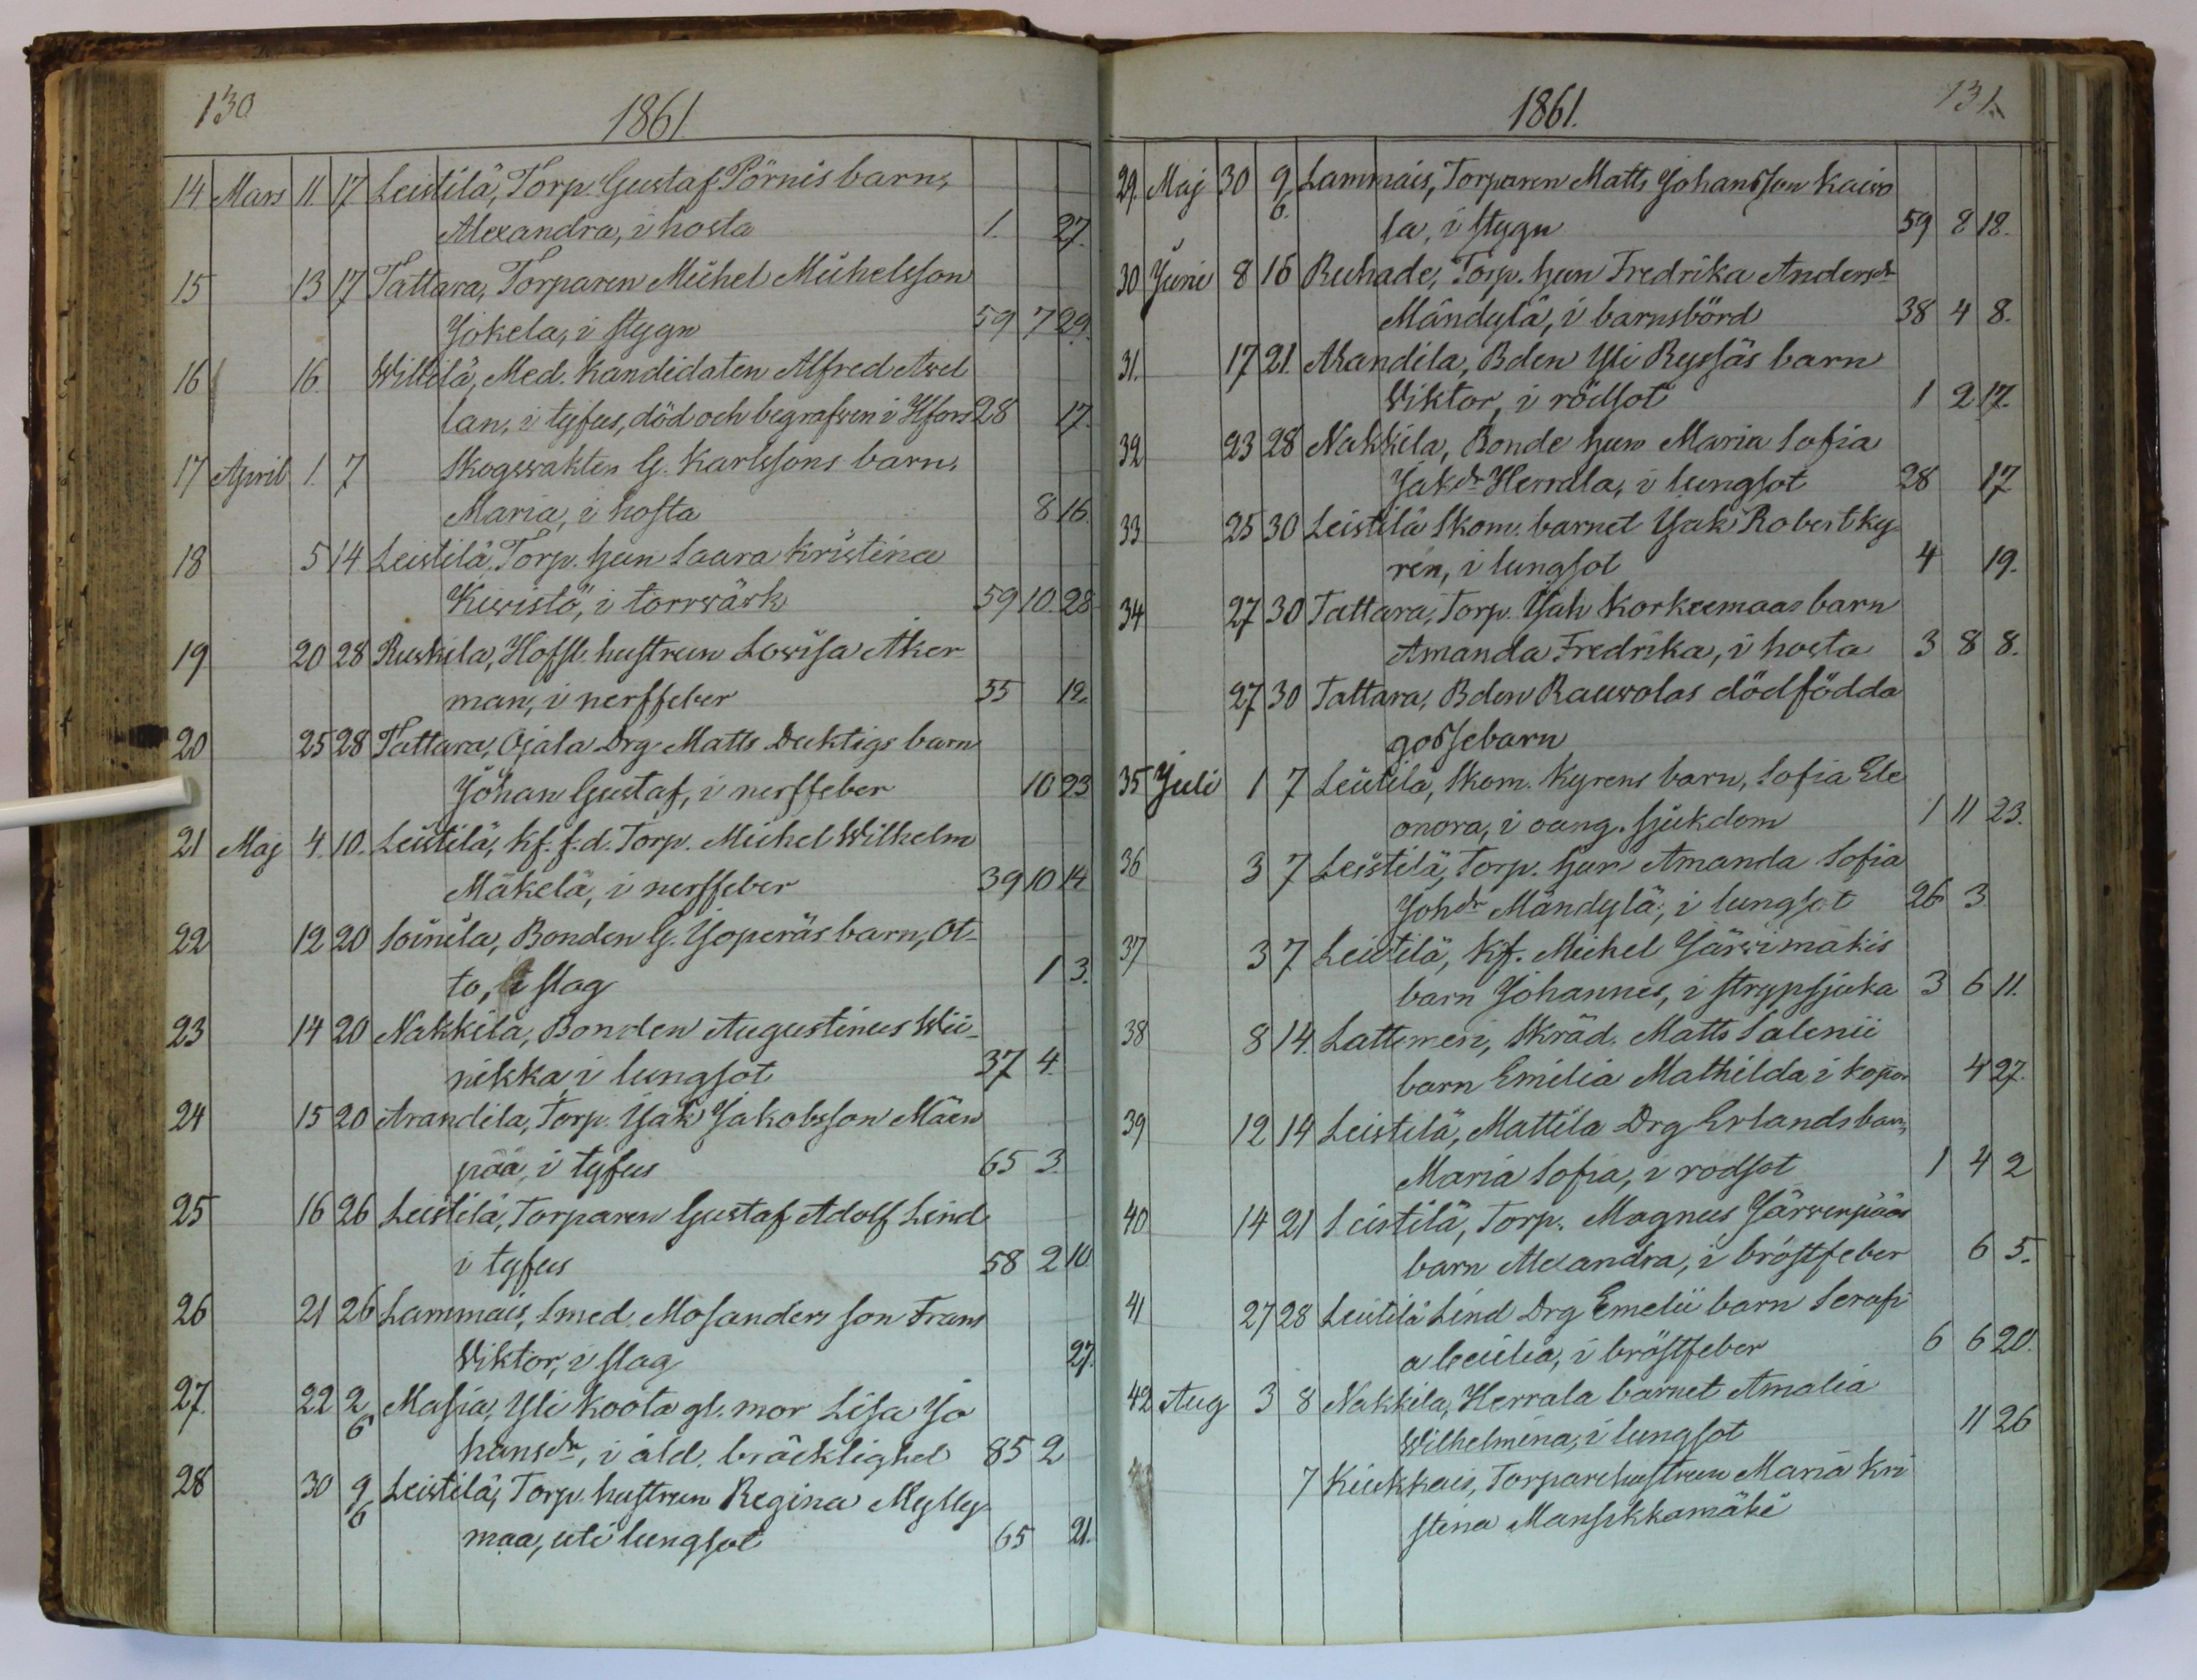 130
1861
14. Mars 11. 17 Leistilä, Torp. Gustaf Pörnis barn,
Alexandra, i hosta 1. 27.
15 13 17 Tattara, Torparen Michel Michelsson
Jokela, i stygn 59 7 29.
16 16. Willilä, Med. Kandidaten Alfred Avel
lan, i tyfus, död och begrafven i Hfors 28 17.
17 April 1. 7 Skogswakten G. Karlssons barn,
Maria, i hosta 8 16.
18 5 14 Leistilä, Torp. hun Saara Kristina
Kiwistö, i torrwärk 59 10. 28
19 20 28 Ruskila, Hofsl. hustrun Lowisa Åker
man, i nerffeber 55 12.
20 25 28 Tattara, Ojala Drg Matts Duktigs barn
Johan Gustaf, i nerffeber 10 23
21 Maj 4. 10. Leistilä, Kf. f.d. Torp. Michel Wilhelm
Mäkelä, i nerffeber 39 10 14
22 12 20 Soinila, Bonden G. Joperäs barn, Ot-
to, i slag 1 3.
23 14 20 Nakkila, Bonden Augustinus Wii-
nikka i lungsot 37 4.
24 15 20 Arandila, Torp. Jak Jakobsson Mäen
pää, i tyfus 65 3.
25 16 26 Leistilä, Torparen Gustaf Adolf Lind
i tyfus 58 2 10
26 21 26 Lammais, Smed. Mosanders son Frans
Viktor, i slag 27.
27. 22 2/6 Masia, Yli Koota gl. mor Lisa Jo
hansdr, i åld. bräcklighet 85 2
28 30 9/6 Leistilä, Torp. hustrun Regina Mylly
maa, uti lungsot 65 21.
131.
1861.
29. Maj 30 9/6. Lammais, Torparen Matts Johansson Kaiwo
la, i stygn 59 8 18.
30 Juni 8 16 Ruhade, Torp. hun Fredrika Andersdr
Mändylä, i barnsbörd 38 4 8.
31. 17 21. Arandila, Bden Yli Ryssäs barn
Viktor, i rödsot 1 2 17.
32 23 28 Nakkila, Bonde hun Maria Sofia
Jakdr Herrala, i lungsot 28 17
33 25 30 Leistilä Skom. barnet Jak Robert Ky
rén, i lungsot 4 19.
34 27 30 Tattara, Torp. Jah Korkeemaas barn
Amanda Fredrika, i hosta 3 8 8.
27 30 Tattara, Bden Rauwolas dödfödda
gossebarn
35 Juli 1 7 Leistilä, Skom. Kyrens barn, Sofia Ele
onora, i oang. sjukdom 1 11 23.
36 3 7 Leistilä, Torp. hun Amanda Sofia
Johdr Mändylä, i lungsot 26 3
37 3 7 Leistilä, Kf. Michel Järwimäkis
barn Johannes, i strypsjuka 3 6 11.
38 8 14. Lattomeri, Skräd. Matts Salenii
barn Emilia Mathilda i kopor 4 27.
39 12 14 Leistilä, Mattila Drg Erlands barn,
Maria Sofia, i rödsot 1 4 2
40 14 21 Leistilä, Torp. Magnus Järwenpääs
barn Alexandra, i bröstfeber 6 5.
41 27 28 Leistilä Lind Drg Emelii barn Serafi
a Cecilia, i bröstfeber 6 6 20.
42 Aug 3 8 Nakkila, Herrala barnet Amalia
Wilhelmina, i lungsot 11 26
7 Kiukkais, Torparehustrun Maria Kri
stina Mansikkamäki